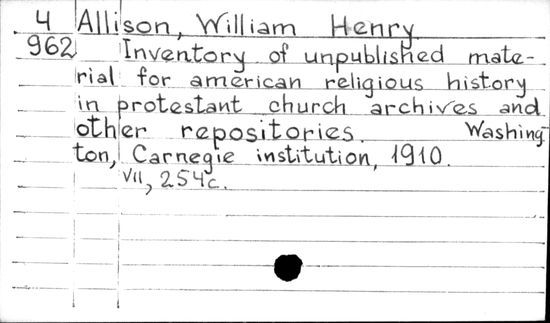 4 Allison, William Henry
962 Inventory of unpublished mate-
rial for american religious history
in protestant church archives and
other repositories. Washing
ton, Carnegie institution, 1910.
VII, 254c.